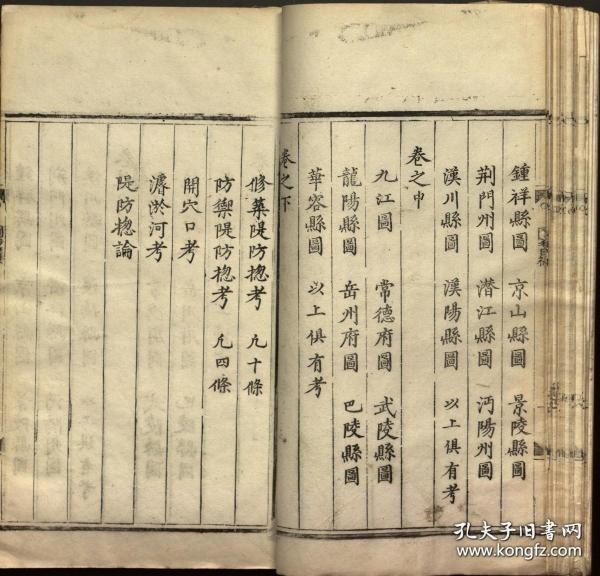 鍾祥縣圖 京山縣圖 景陵縣圖
荆門州圖 潛江縣圖 沔陽州圖
漢川縣圖 漢陽縣圖 以上俱有考
卷之中
九江圖 常德府圖 武陵縣圖
龍陽縣圖 岳州府圖 巴陵縣圖
華容縣圖 以上俱有考
卷之下
修築隄防揔考 凡十條
防禦隄防揔考 凡四條
開穴口考
濬淤河考
隄防揔論
孔夫子旧书网
www.kongfz.com